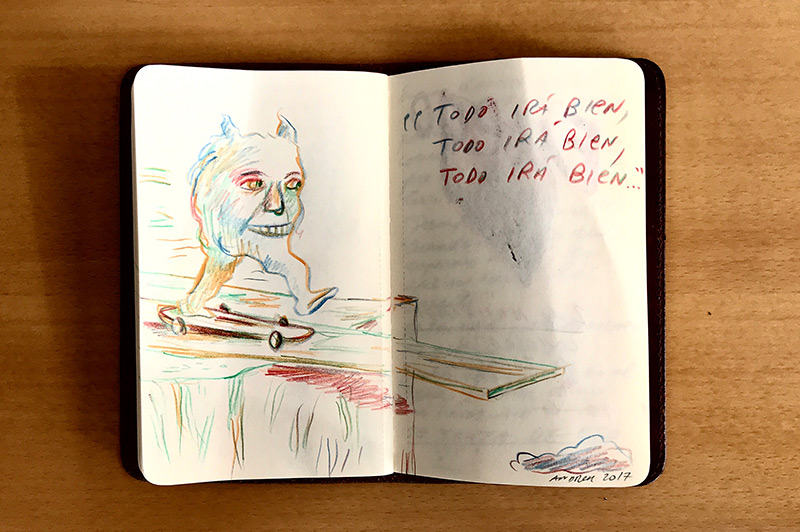 “TODO IRÁ BIEN,
TODO IRÁ BIEN,
TODO IRÁ BIEN..."
2017